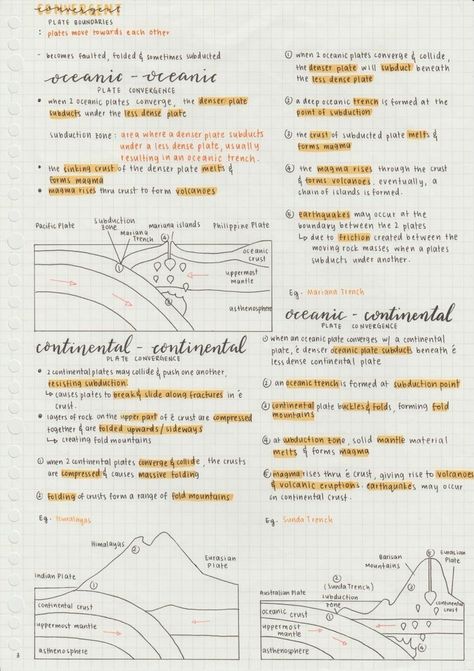 convergent
PLATE BOUNDARIES
: plates move towards each other
- becomes faulted, folded & sometimes subducted
oceanic - oceanic
PLATE CONVERGENCE
• when 2 oceanic plates converge, the denser plate
subducts under the less dense plate
subduction zone : area where a denser plate subducts
under a less dense plate, usually
resulting in an oceanic trench.
• the sinking crust of the denser plate melts &
forms magma
• magma rises thru crust to form volcanoes
Pacific Plate
Subduction
zone
Mariana
Trench
Mariana islands
Philippine Plate
④
①
③
oceanic
crust
uppermost
mantle
asthenosphere
① when 2 oceanic plates converge & collide,
the denser plate will subduct beneath
the less dense plate
② a deep oceanic trench is formed at the
point of subduction
③ the crust of subducted plate melts &
forms magma
④ the magma rises through the crust
& forms volcanoes. eventually, a
chain of islands is formed.
⑤ earthquakes may occur at the
boundary between the 2 plates
↳ due to friction created between the
moving rock masses when a plates
subducts under another.
Eg. Mariana Trench
continental - continental
PLATE CONVERGENCE
• 2 continental plates may collide & push one another,
resisting subduction.
↳ causes plates to break & slide along fractures in ē
crust.
• layers of rock on the upper part of ē crust are compressed
together & are folded upwards/sideways
↳ creating fold mountains
① when 2 continental plates converge & collide, the crusts
are compressed & causes massive folding
② folding of crusts form a range of fold mountains
Eg. Himalayas
Himalayas
②
Eurasian
Plate
Indian Plate
①
continental crust
uppermost mantle
asthenosphere
oceanic - continental
PLATE CONVERGENCE
① when an oceanic plate converges w/ a continental
plate, ē denser oceanic plate subducts beneath ē
less dense continental plate
② an oceanic trench is formed at subduction point
③ continental plate buckles & folds, forming fold
mountains
④ at subduction zone, solid mantle material
melts & forms magma
⑤ magma rises thru ē crust, giving rise to volcanoes
& volcanic eruptions. earthquakes may occur
in continental crust.
Eg. Sunda Trench
Barisan
Mountains
⑤
Eurasian
Plate
②
(Sunda Trench)
subduction
zone
③
Australian Plate
①
oceanic crust
continental
crust
uppermost
mantle
④
asthenosphere
3